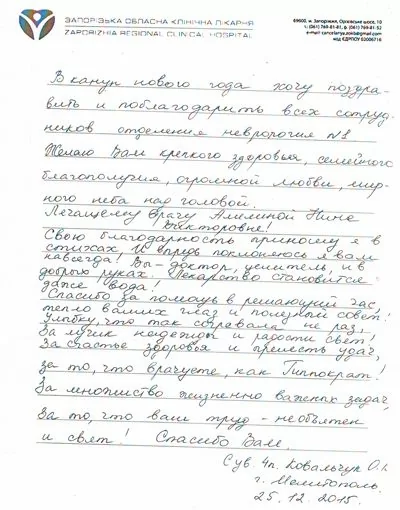 ЗАПОРІЗЬКА ОБЛАСНА КЛІНІЧНА ЛІКАРНЯ
ZAPORIZHIA REGIONAL CLINICAL HOSPITAL
69600, м. Запоріжжя, Оріхівське шосе, 10
т.: (061) 769-81-81, ф. (061) 769-81-52
код ЄДРПОУ 02006716
В канун нового года хочу поздра-
вить и поблагодарить всех сотруд-
ников отделения неврология №1
Желаю Вам крепкого здоровья, семейного
благополучия, огромной любви, мир-
ного неба над головой.
Лечащему врачу Амелиной Нине
Викторовне!
Свою благодарность приношу я в
стихах. И впредь поклоняюсь я вам
навсегда! Вы - доктор, целитель, и в
добрых руках. Лекарство становится
даже вода!
Спасибо за помощь в решающий час
тепло ваших глаз и полезный совет!
Улыбку, что так согревала не раз!
За лучик надежды и радости свет!
За счастье здоровья и прелесть удач
за то, что врачуете, как Гиппократ!
За множество жизненно важных задач,
За то, что ваш труд - необъятен
и свят! Спасибо Вам.
Сув. 4п. Ковальчук О.І.
г. Мелитополь.
25.12.2015.